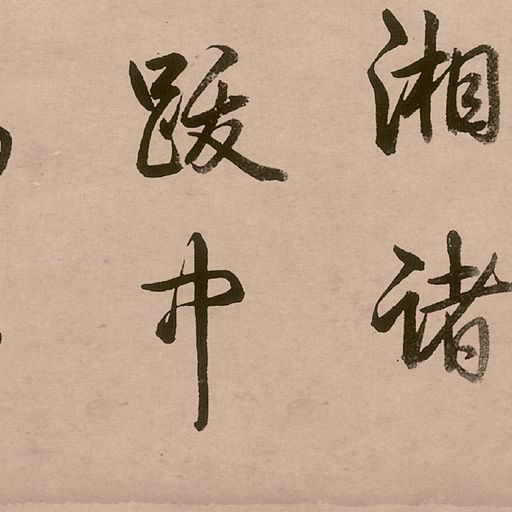 湘諸
跋中